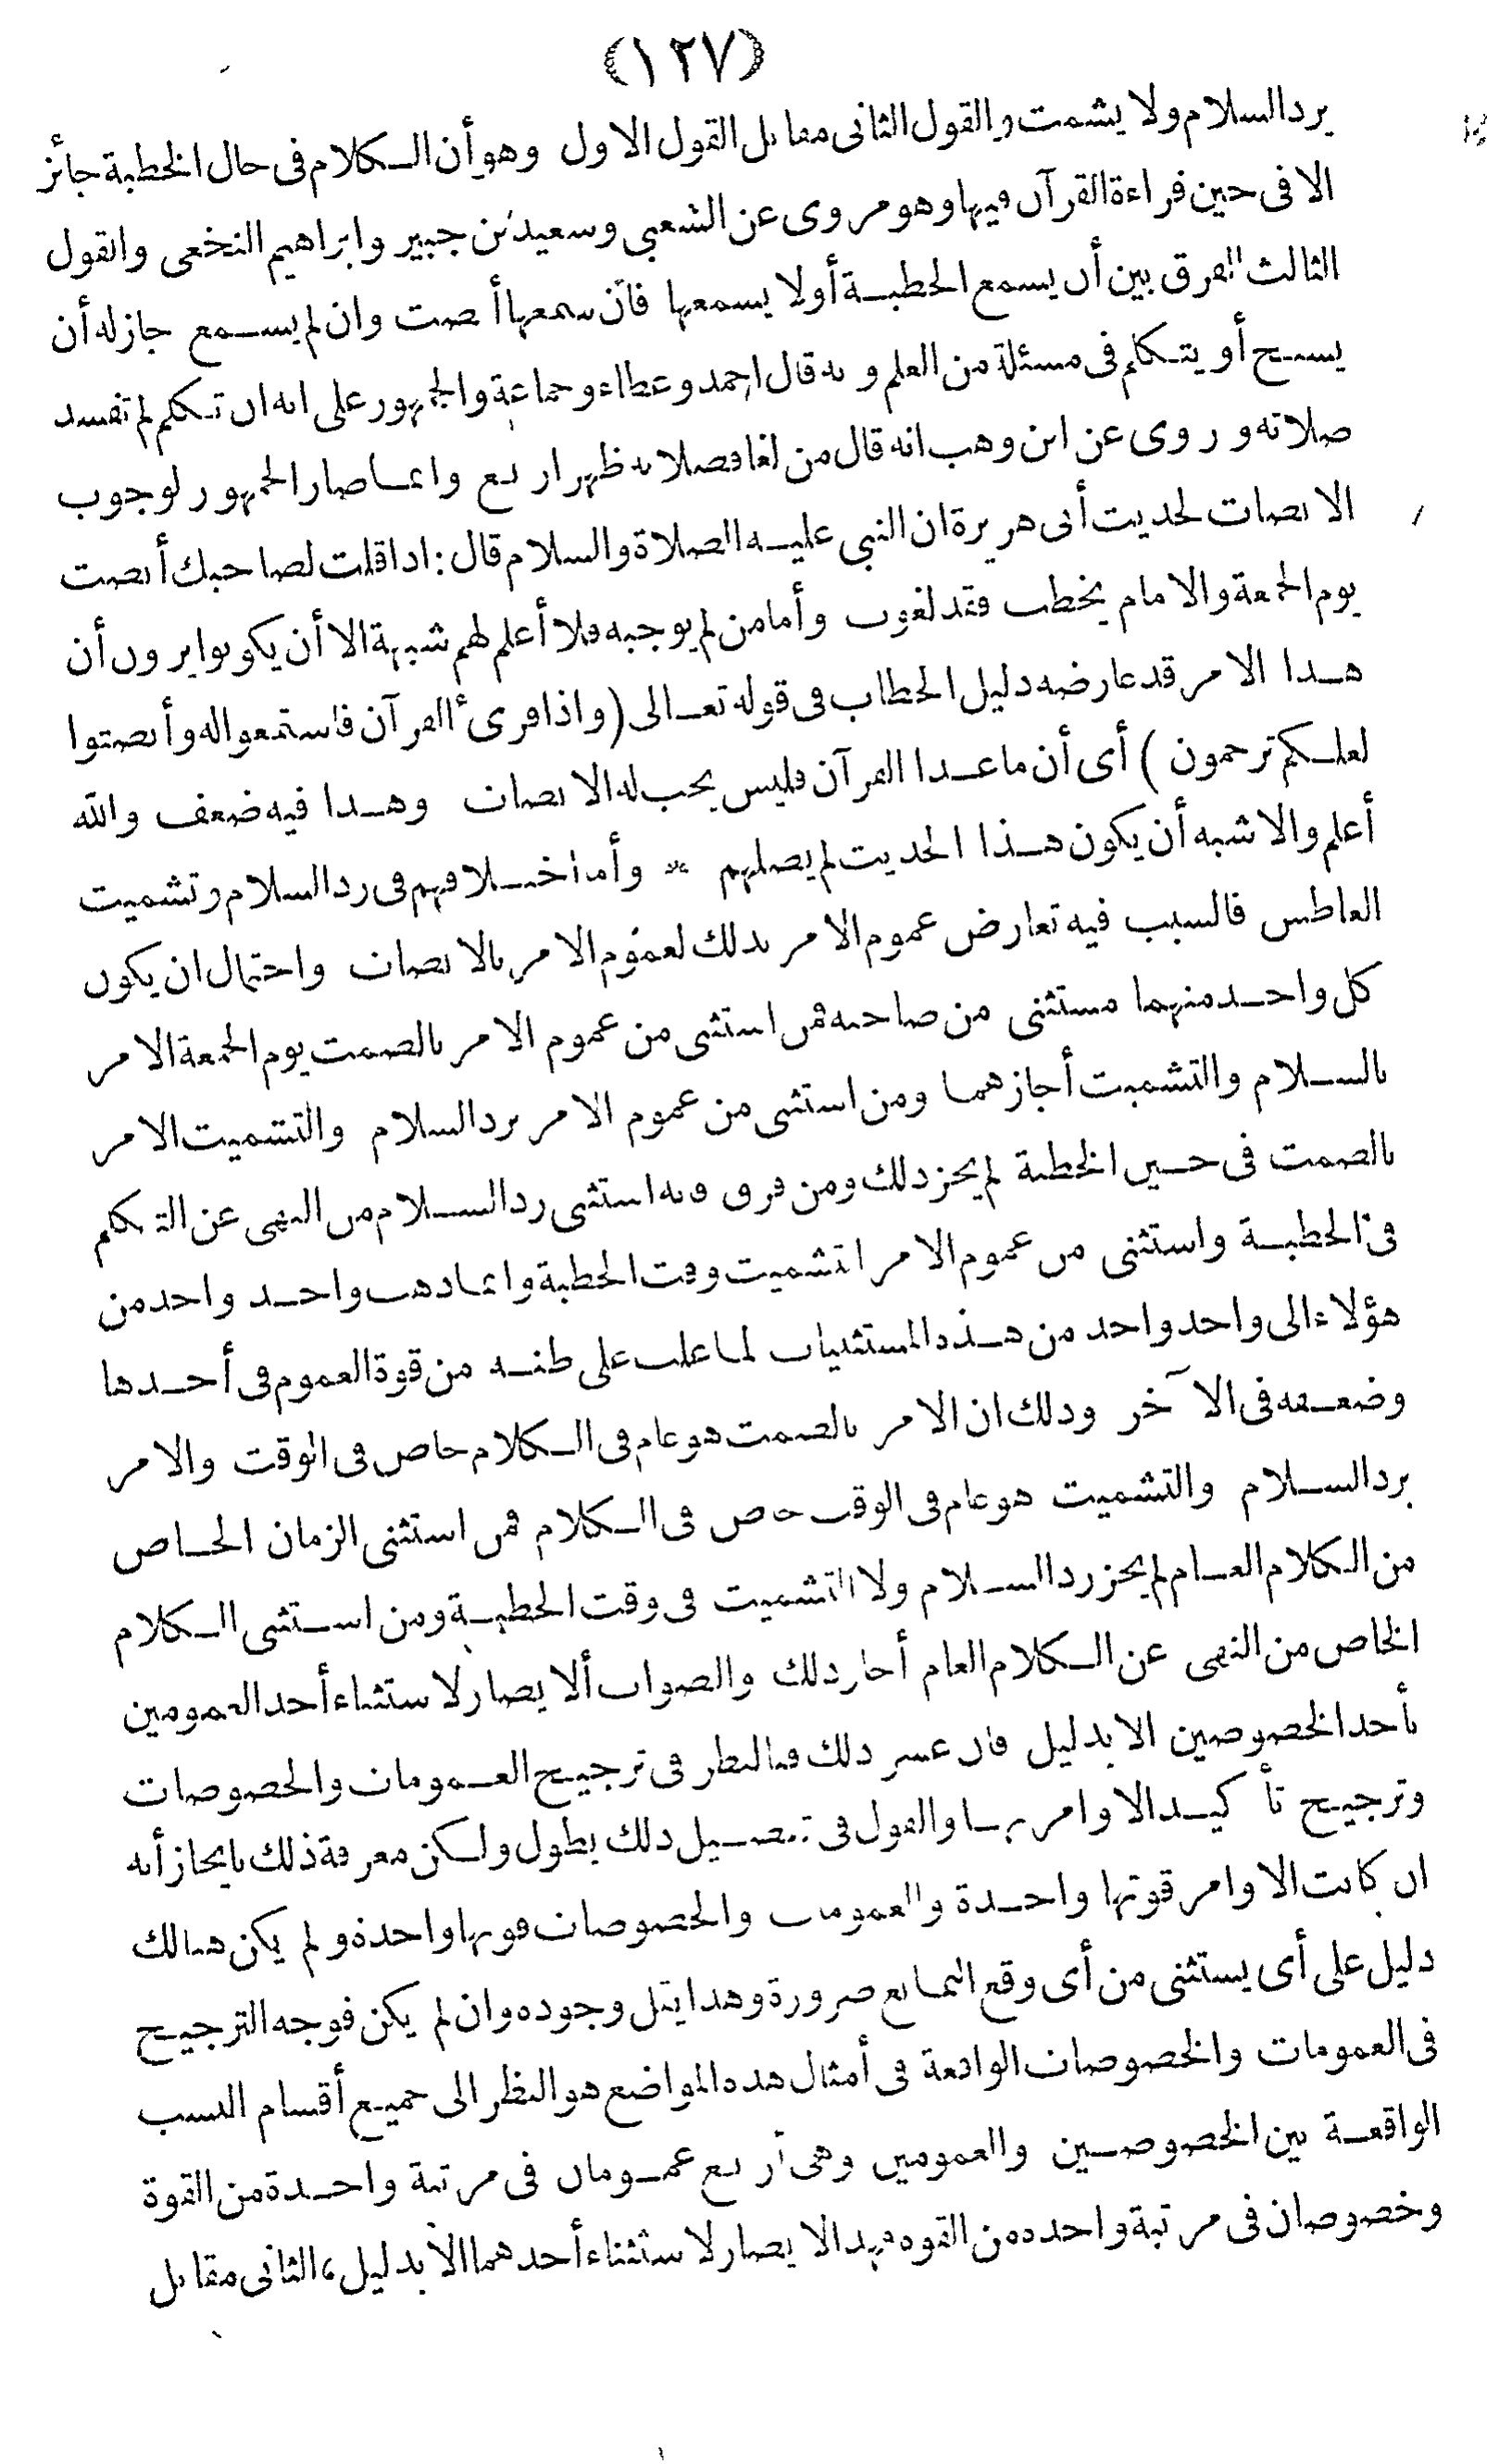 (١٢٧)
يرد السلام ولا يشمت والقول الثانى مقابل القول الاول وهو أن الكلام فى حال الخطبة جائز
الا فى حين قراءة القرآن فيها وهو مروى عن الشعبي وسعيد بن جبير وابراهيم النخعى والقول
الثالث الفرق بين أن يسمع الخطبة أولا يسمعها فان سمعها أنصت وان لم يسمع جاز له أن
يسبح أو يتكلم فى مسئلة من العلم وبه قال احمد وعطاء وجماعة والجمهور على انه ان تكلم لم تفسد
صلاته وروى عن ابن وهب انه قال من لغا فصلاته ظهر اربع وانما صار الجمهور لوجوب
الانصات لحديث أبى هريرة ان النبي عليه الصلاة والسلام قال: اذا قلت لصاحبك أنصت
يوم الجمعة والامام يخطب فقد لغوت وأما من لم يوجبه فلا أعلم لهم شبهة الا أن يكونوا يرون أن
هذا الامر قد عارضه دليل الخطاب فى قوله تعالى (واذا قرىء القرآن فاستمعوا له وأنصتوا
لعلكم ترحمون) أى أن ما عدا القرآن فليس يجب له الانصات وهذا فيه ضعف والله
أعلم والاشبه أن يكون هذا الحديث لم يصلهم * وأما اختلافهم فى رد السلام وتشميت
العاطس فالسبب فيه تعارض عموم الامر بذلك لعموم الامر بالانصات واحتمال ان يكون
كل واحد منهما مستثنى من صاحبه فمن استثنى من عموم الامر بالصمت يوم الجمعة الامر
بالسلام والتشميت أجازهما ومن استثنى من عموم الامر برد السلام والتشميت الامر
بالصمت فى حين الخطبة لم يجز ذلك ومن فرق فانه استثنى رد السلام من النهى عن التكلم
فى الخطبة واستثنى من عموم الامر التشميت وقت الخطبة وانما ذهب واحد واحد من
هؤلاء الى واحد واحد من هذه المستثنيات لما غلب على ظنه من قوة العموم فى أحدها
وضعفه فى الآخر وذلك ان الامر بالصمت هو عام فى الكلام خاص فى الوقت والامر
برد السلام والتشميت هو عام فى الوقت خاص فى الكلام فمن استثنى الزمان الخاص
من الكلام العام لم يجز رد السلام ولا التشميت فى وقت الخطبة ومن استثنى الكلام
الخاص من النهى عن الكلام العام أجاز ذلك والصواب ألا يصار لاستثناء أحد العمومين
بأحد الخصوصين الا بدليل فان عسر ذلك فبالنظر فى ترجيح العمومات والخصوصات
وترجيح تأكيد الاوامر بها والقول فى تفصيل ذلك يطول ولكن معرفة ذلك بايجاز أنه
ان كانت الاوامر قوتها واحدة والعمومات والخصوصات قوتها واحدة ولم يكن هنالك
دليل على أى يستثنى من أى وقع التمانع ضرورة وهذا يقل وجوده وان لم يكن فوجه الترجيح
فى العمومات والخصوصات الواقعة فى أمثال هذه المواضع هو النظر الى جميع أقسام النسب
الواقعة بين الخصوصين والعمومين وهى أربع عمومان فى مرتبة واحدة من القوة
وخصوصان فى مرتبة واحدة من القوة فهذا لا يصار لاستثناء أحدهما الا بدليل، الثانى مقابل